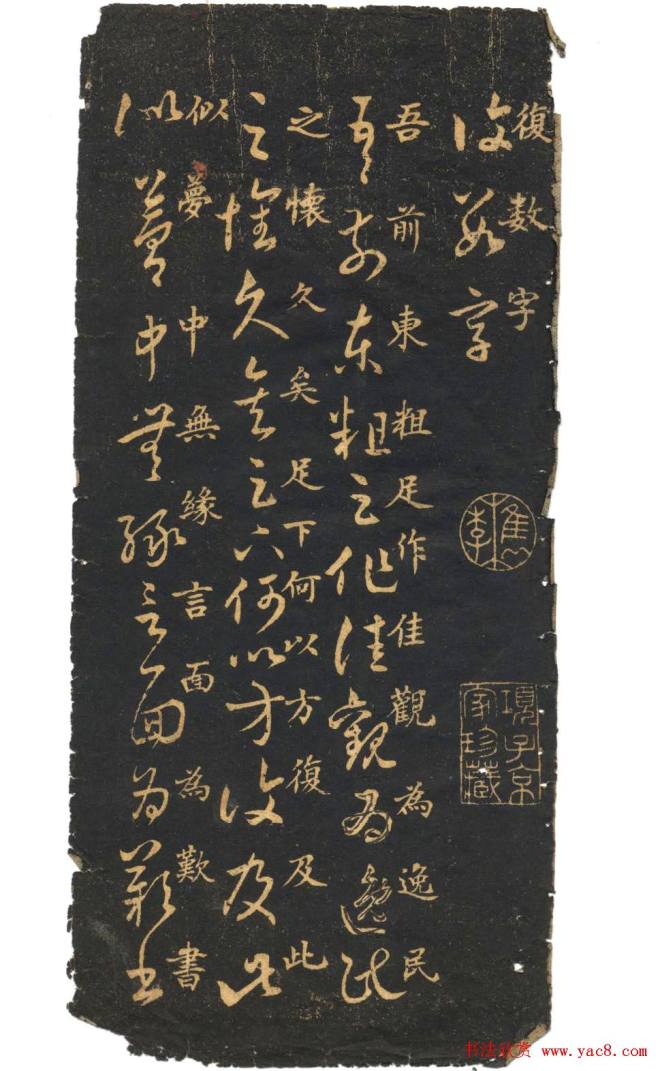 復數字
復數字
檇李
項子京
家珍藏
吾前東粗足作佳觀為逸民
吾前東粗足作佳觀為逸民
之懷久矣足下何以方復及此
之懷久矣足下何以方復及此
似夢中無緣言面為歎書
似夢中無緣言面為歎書
书法欣赏 www.yac8.com